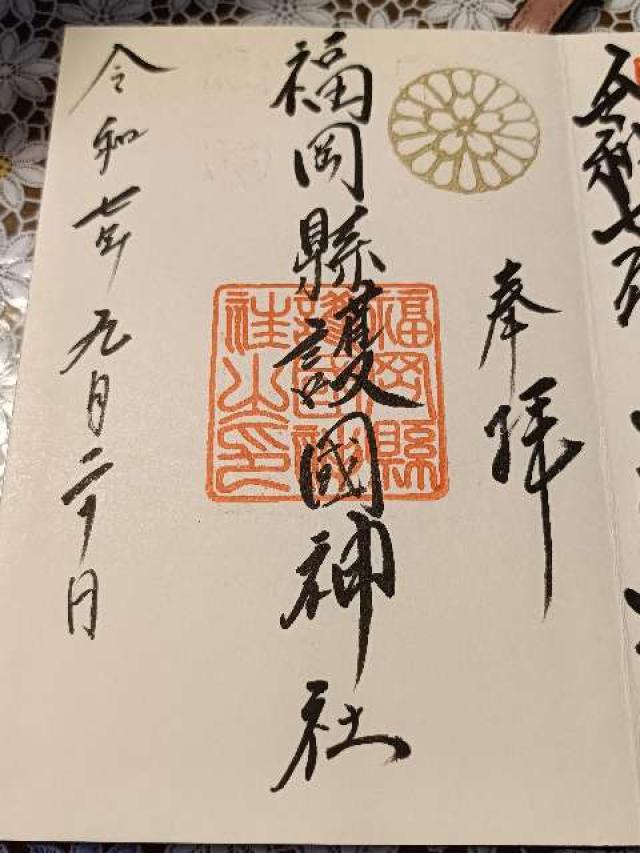 奉拝
福岡縣護國神社
福岡縣
護國神
社之印
令和七年九月二十日